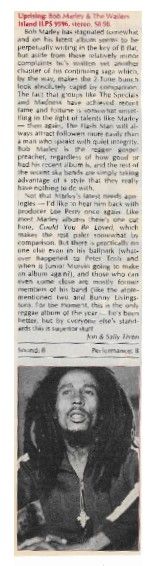 Uprising: Bob Marley & The Wailers
Island ILPS 9596, stereo, $8.98
Bob Marley has stagnated somewhat
and on his latest album seems to be
perpetually writing in the key of B flat,
but aside from those relatively minor
complaints he's written yet another
chapter of his continuing saga which,
by the way, makes the 2-Tone bunch
look absolutely vapid by comparison.
The fact that groups like The Specials
and Madness have achieved recent
fame and fortune is somewhat
in the light of talents like Marley
on then again, The Flash Man will al-
ways attract followers more easily than
a man who speaks with quiet integrity.
Bob Marley is the reggae gospel
preacher, regardless of how good or
bad his recent album is, and the rest of
the recent ska bands are simply taking
advantage of a style that they really
have nothing to do with.
Not that Marley's latest needs apo-
logies — I'd like to hear him back with
producer Lee Perry once again. Like
most Marley albums there's one cut
here, Could You Be Loved, which
makes the rest paler somewhat by
comparison. But there is practically no
one else even in his ballpark (what-
ever happened to Peter Tosh and
when is Junior Murvin going to make
an album again?), and those who can
even come close are mostly former
members of his band (like the afore-
mentioned two and Bunny Livings-
ton). For the moment, this is the only
reggae album of the year — he's been
better, but by everyone else's stand-
ards this is superior stuff.
Jon & Sally Tiven
Sound: B Performance: B